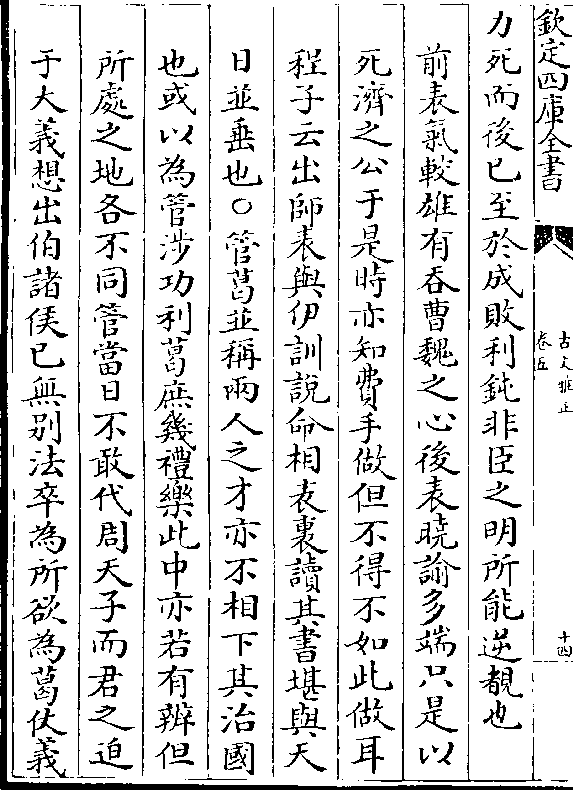 欽定四庫全書
古文雅正
卷五
十四
力死而後已至於成敗利鈍非臣之明所能逆覩也
前表氣較雄有吞曹魏之心後表曉諭多端只是以
死濟之公于是時亦知費手做但不得不如此做耳
程子云出師表與伊訓說命相表裏讀其書堪與天
日並垂也○管葛並稱兩人之才亦不相下其治國
也或以為管涉功利葛庶幾禮樂此中亦若有辨但
所處之地各不同管當日不敢代周天子而君之迫
于大義想出伯諸侯已無别法卒為所欲為葛仗義